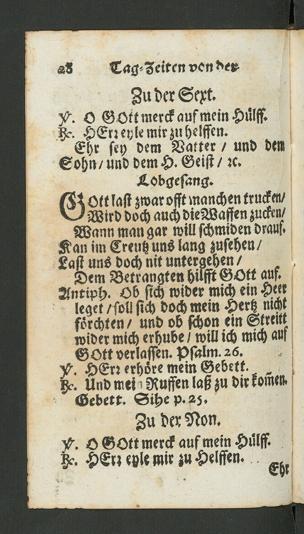 28 Tag-Zeiten von der
Zu der Sext.
℣. O GOtt merck auf mein Hülff.
℟. HErr eyle mir zu helffen.
Ehr sey dem Vatter / und dem
Sohn / und dem H. Geist / ꝛc.
Lobgesang.
GOtt last zwar offt manchen trucken /
Wird doch auch die Waffen zucken /
Wann man gar will schmiden drauf.
Kan im Creutz uns lang zusehen /
Last uns doch nit untergehen /
Dem Betrangten hilfft GOtt auf.
Antiph. Ob sich wider mich ein Heer
leget / soll sich doch mein Hertz nicht
förchten / und ob schon ein Streitt
wider mich erhube / will ich mich auf
GOtt verlassen. Psalm. 26.
℣. HErr erhöre mein Gebett.
℟. Und mein Ruffen laß zu dir kom̃en.
Gebett. Sihe p. 25.
Zu der Non.
℣. O GOtt merck auf mein Hülff.
℟. HErr eyle mir zu Helffen.
Ehr